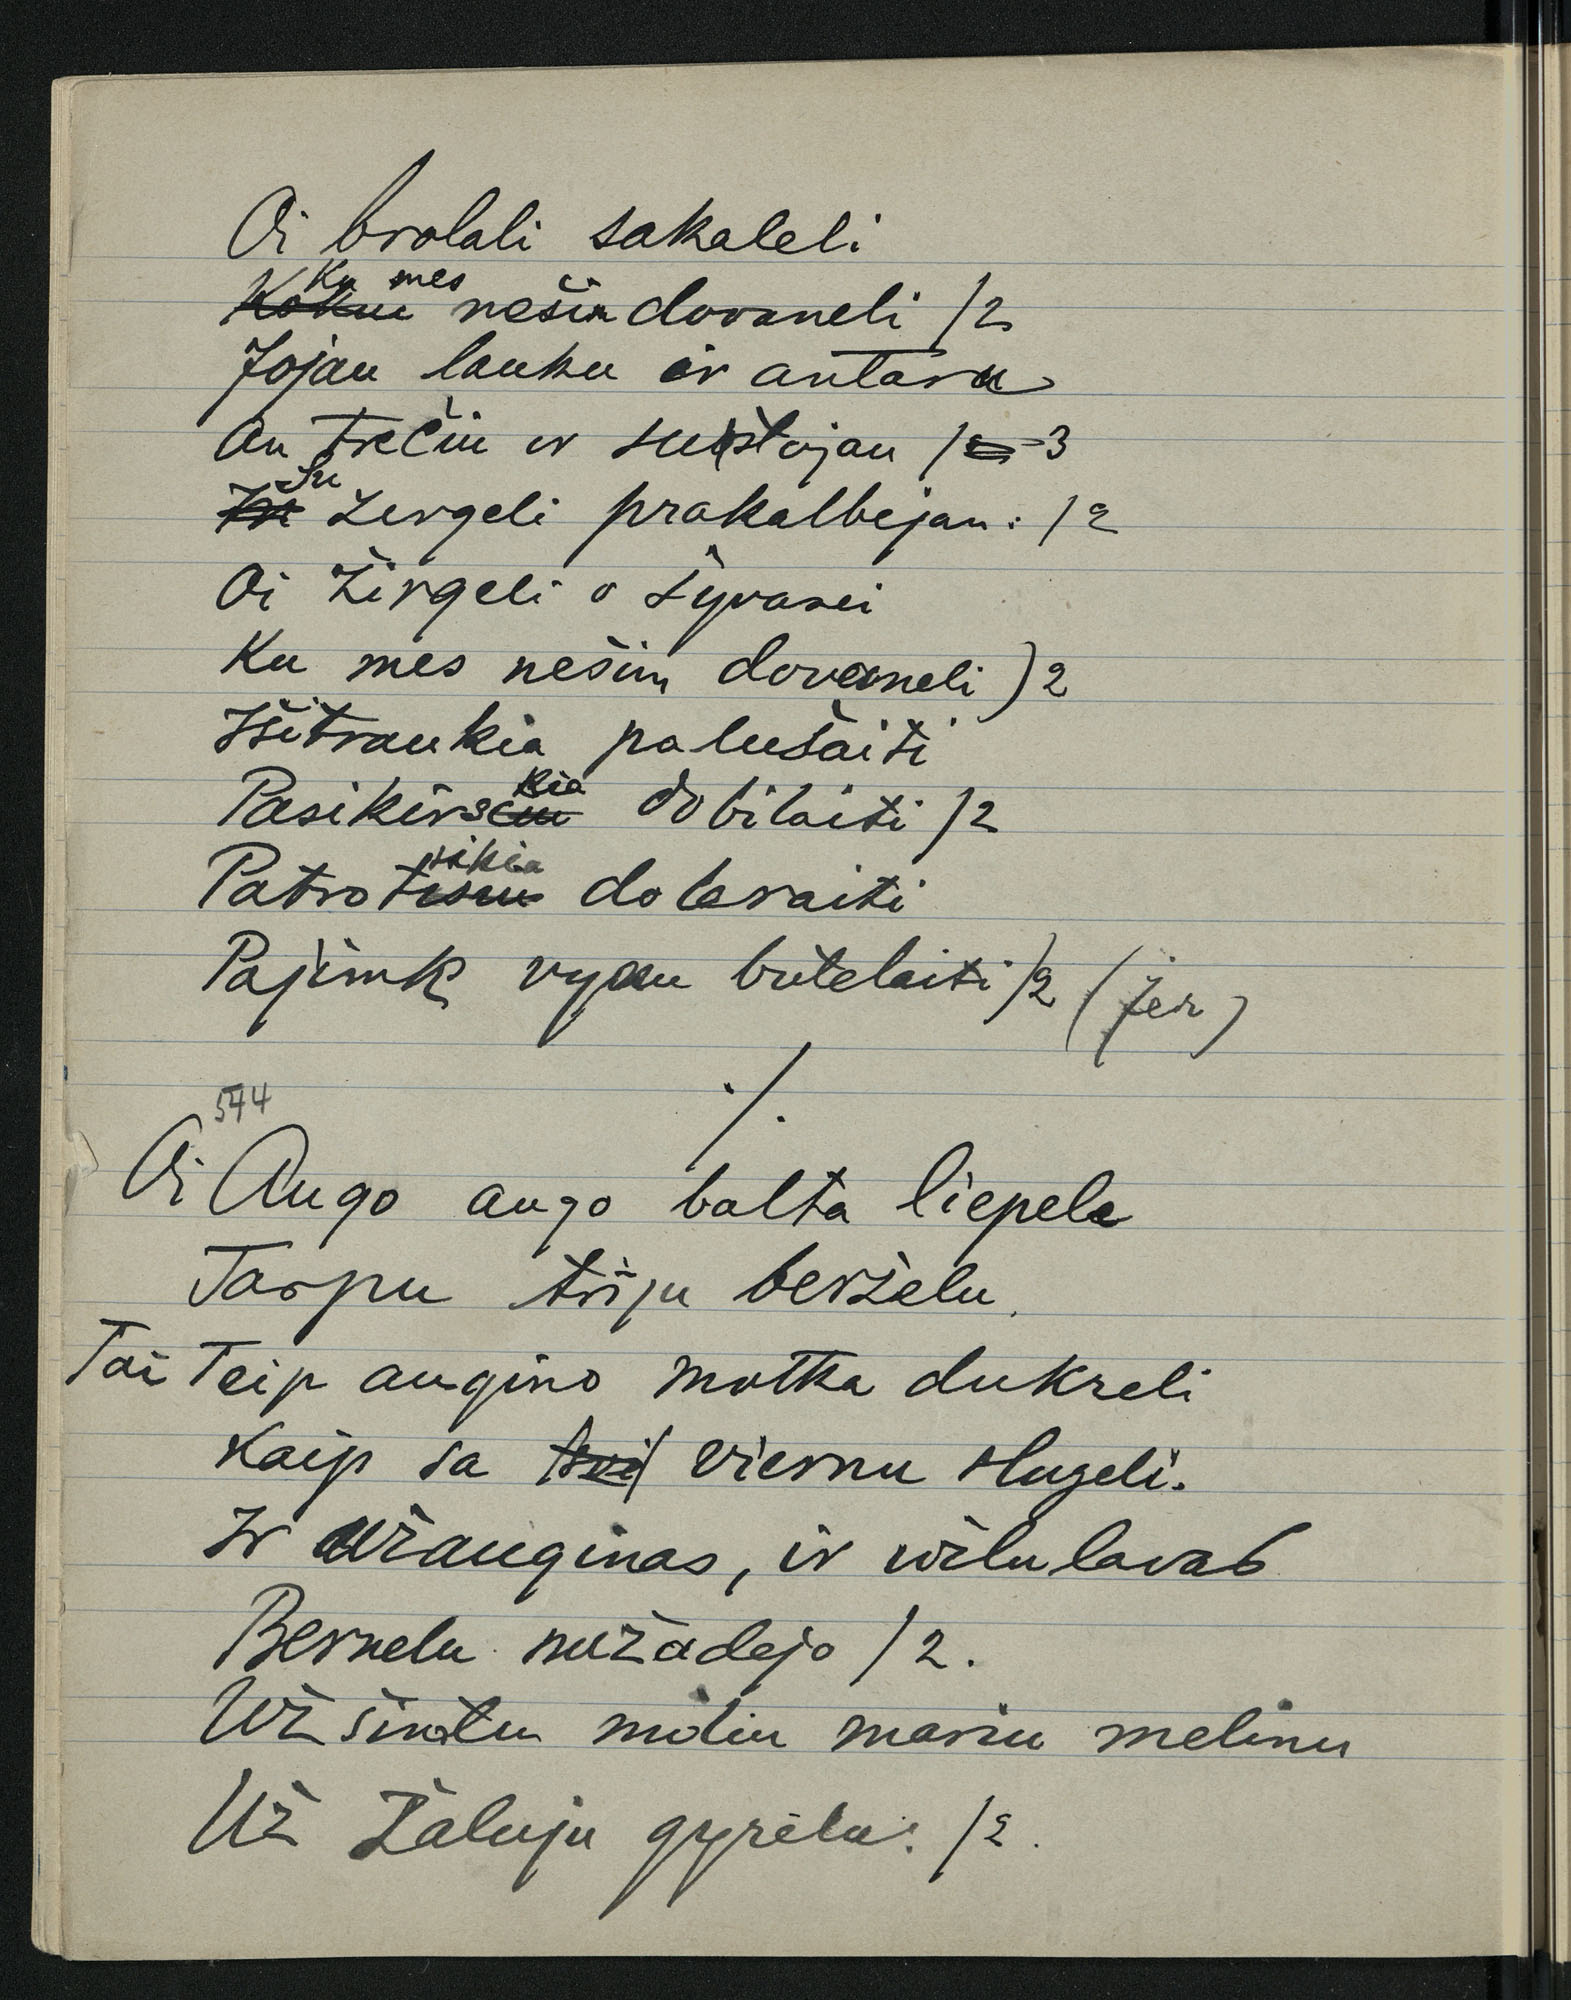 Oi brolali sakaleli
Ku mes nešim dovaneli /2
Jojau lauku ir antaru
An trečiu ir sustojau / 3
Su žergeli prakalbejau: /2
Oi Žirgeli o šyvasei
Ku mes nešim dovaneli )2
Išitraukia palušaiti
Pasikirskia dobilaiti /2
Patrotisikia doleraiti
Pajimk vyau butelaiti /2 (Jer)
./.
544
Oi Augo augo balta liepele
Tarpu triju berželu.
Tai Teip augino motka dukreli
Kaip sa viernu slugeli.
Ir užauginas, ir wilulavas
Bernelu nužadejo /2.
Už šimtu miliu mariu melinu
Už Žaluju gyrelu: /2.